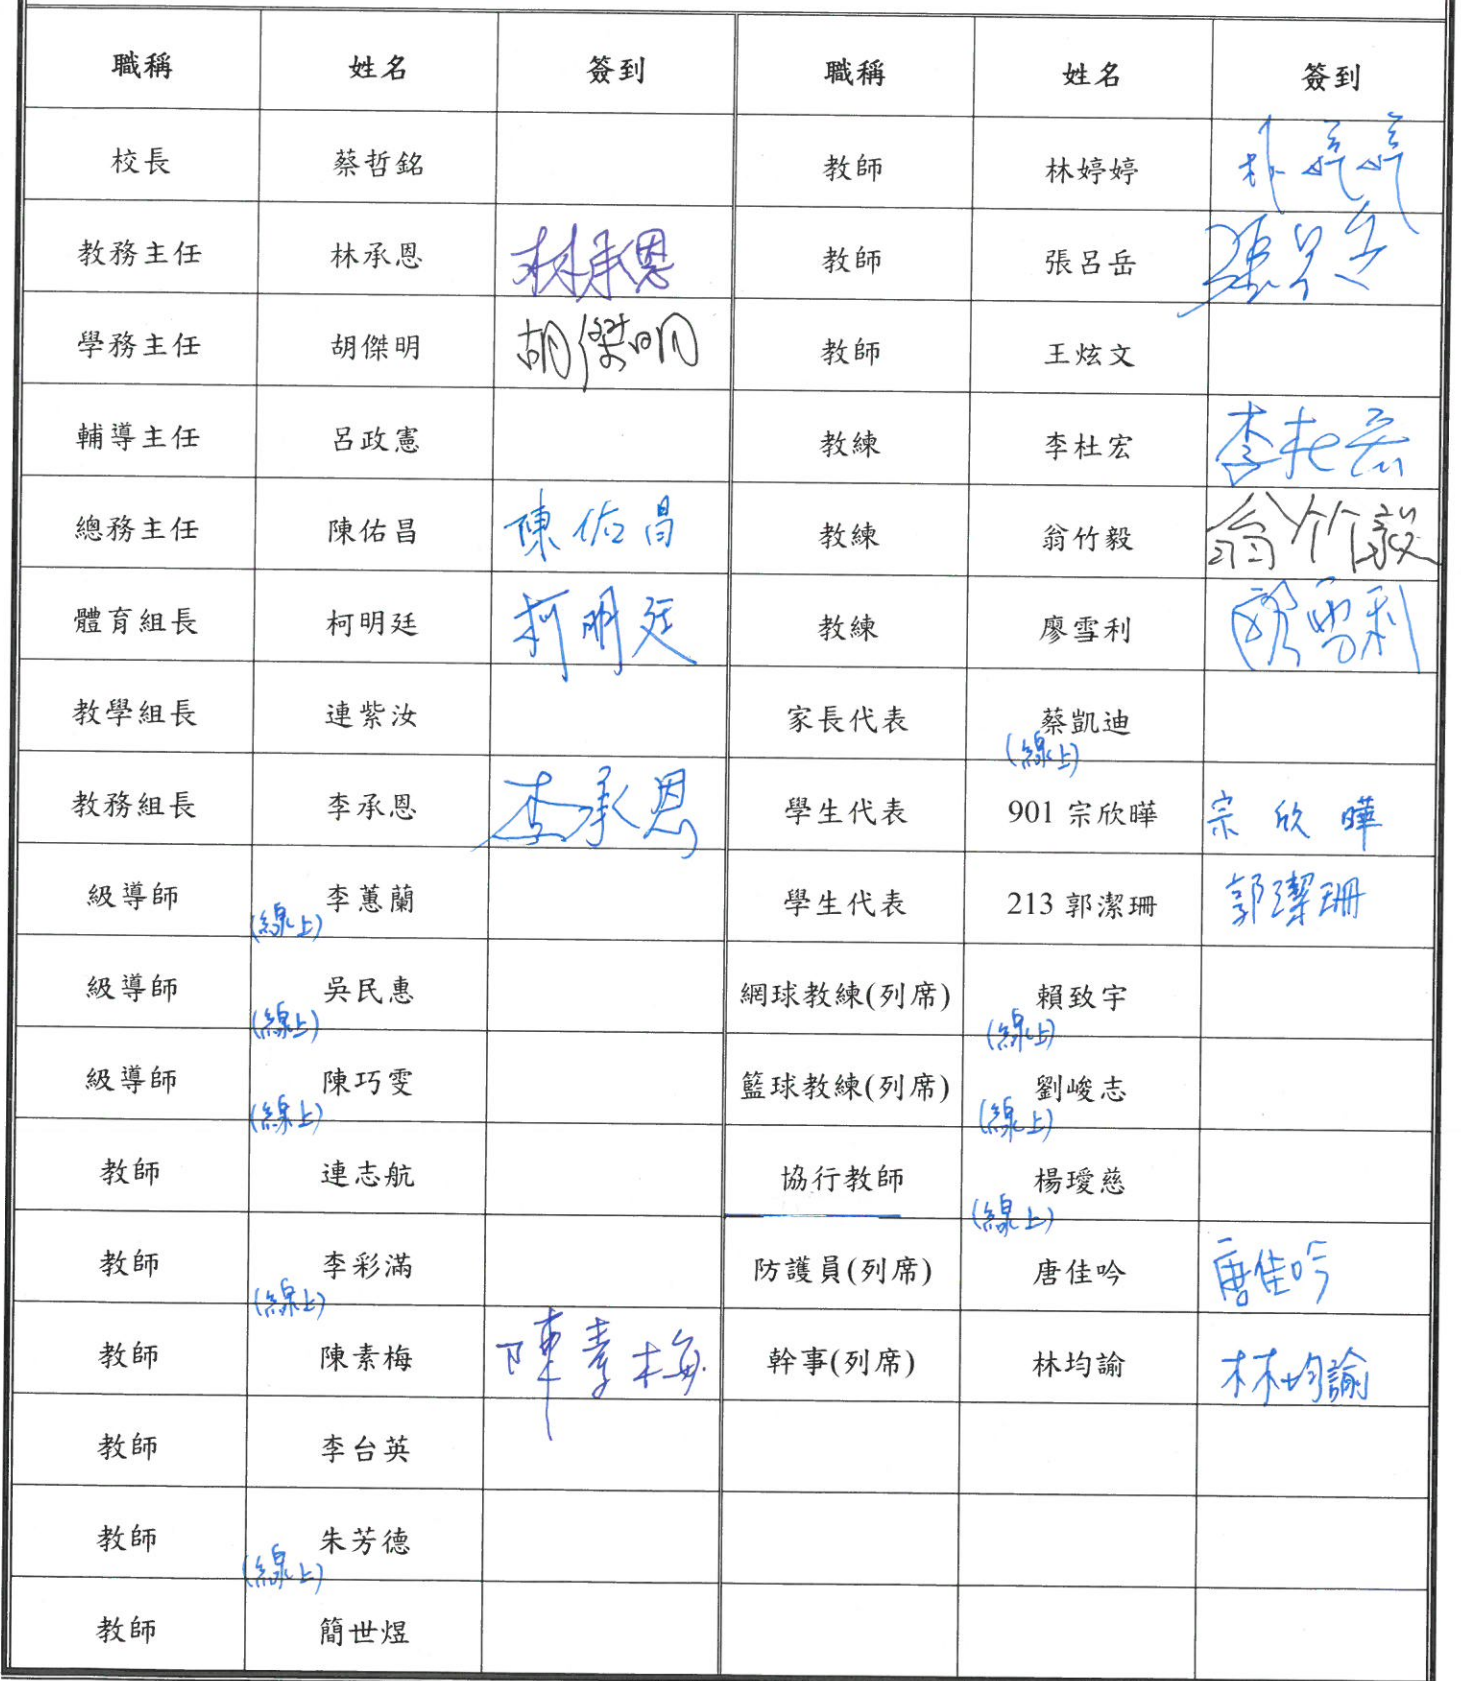 職稱 姓名 簽到 職稱 姓名 簽到
校長 蔡哲銘 教師 林婷婷 林婷婷
教務主任 林承恩 林承恩 教師 張呂岳 張呂岳
學務主任 胡傑明 胡傑明 教師 王炫文
輔導主任 呂政憲 教練 李杜宏 李杜宏
總務主任 陳佑昌 陳佑昌 教練 翁竹毅 翁竹毅
體育組長 柯明廷 柯明廷 教練 廖雪利 廖雪利
教學組長 連紫汝 家長代表 蔡凱迪
(線上)
教務組長 李承恩 李承恩 學生代表 901 宗欣曄 宗欣曄
級導師 李蕙蘭 學生代表 213 郭潔珊 郭潔珊
(線上)
級導師 吳民惠 網球教練(列席) 賴致宇
(線上) (線上)
級導師 陳巧雯 籃球教練(列席) 劉峻志
(線上) (線上)
教師 連志航 協行教師 楊璦慈
(線上)
教師 李彩滿 防護員(列席) 唐佳吟 唐佳吟
(線上)
教師 陳素梅 陳素梅 幹事(列席) 林均諭 林均諭
教師 李台英
教師 朱芳德
(線上)
教師 簡世煜